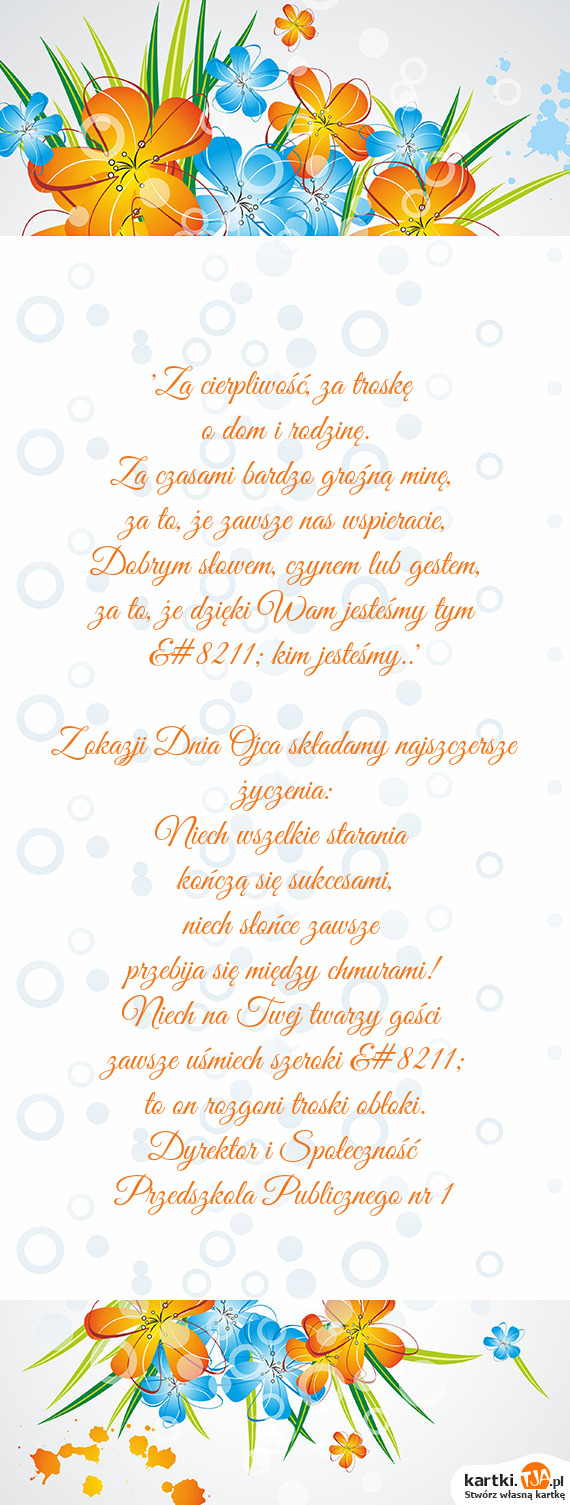 'Zą cierpliwość, za troskę
o dom i rodzinę.
Zą czasami bardzo groźną minę,
za to, że zawsze nas wspieracie,
Dobrym słowem, czynem lub gestem,
za to, że dzięki Wam jesteśmy tym
&#8211; kim jesteśmy..'
Zokazji Dnia Ojca składamy najszczersze
życzenia:
Niech wszelkie starania
kończą się sukcesami,
niech słońce zawsze
przebija się między chmurami!
Niech na Twej twarzy gości
zawsze uśmiech szeroki &#8211;
to on rozgoni troski obłoki.
Dyrektor i Społeczność
Przedszkola Publicznego nr 1
kartki.TJA.pl
Stwórz własną kartkę